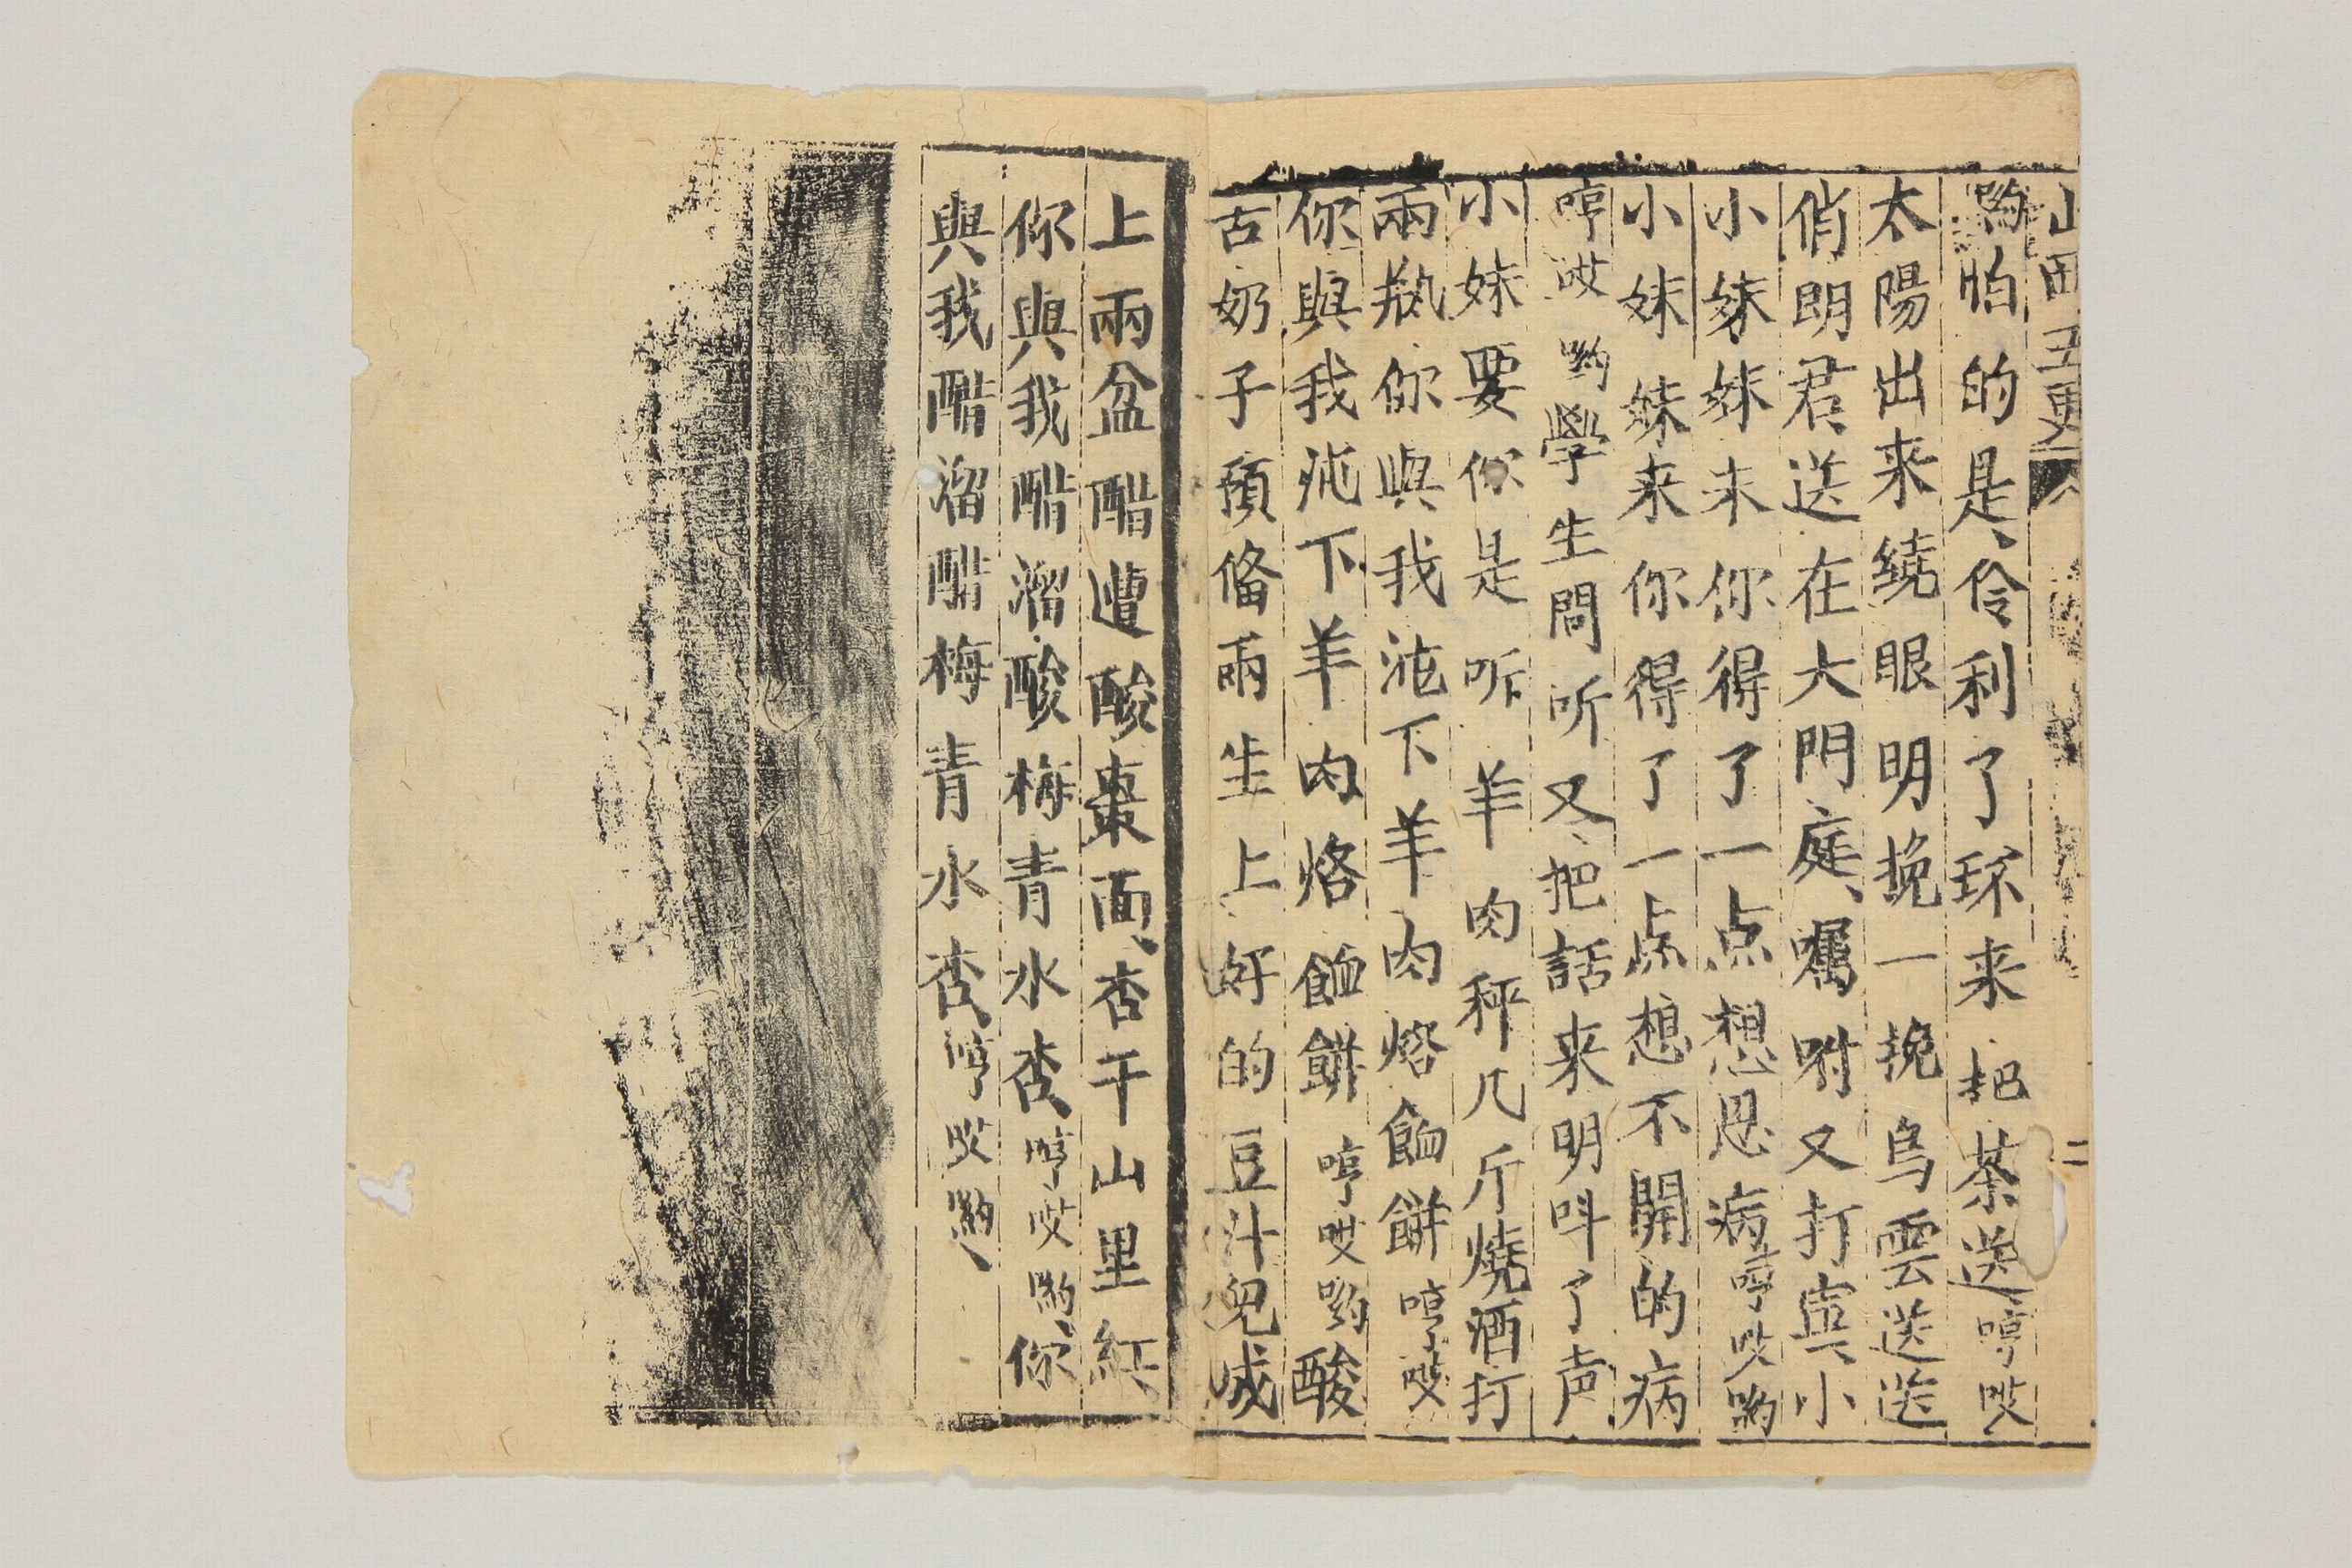 山田五更 二
喲怕的是伶利了环来把茶送哼哎
太陽出来繞眼明挽一挽烏雲送送
俏朗君送在大門庭、嘱咐又打盅小
小妹妹未你得了一点想思病哼哎喲
小妹妹来你得了一点想不開的病
哼哎喲學生問听又把話来明呌了声
小妹要你是听羊肉秤几斤燒酒打
兩瓶你與我沌下羊肉熔餡餅哼哎
你與我沌下羊肉烙餡餅哼哎喲酸
古奶子預俻兩生上好的豆汁兒咸
上兩盆醋遭酸棗面、杏干山里紅
你與我醋溜酸梅青水杏哼哎喲你
與我醋溜醋梅青水杏哼哎喲